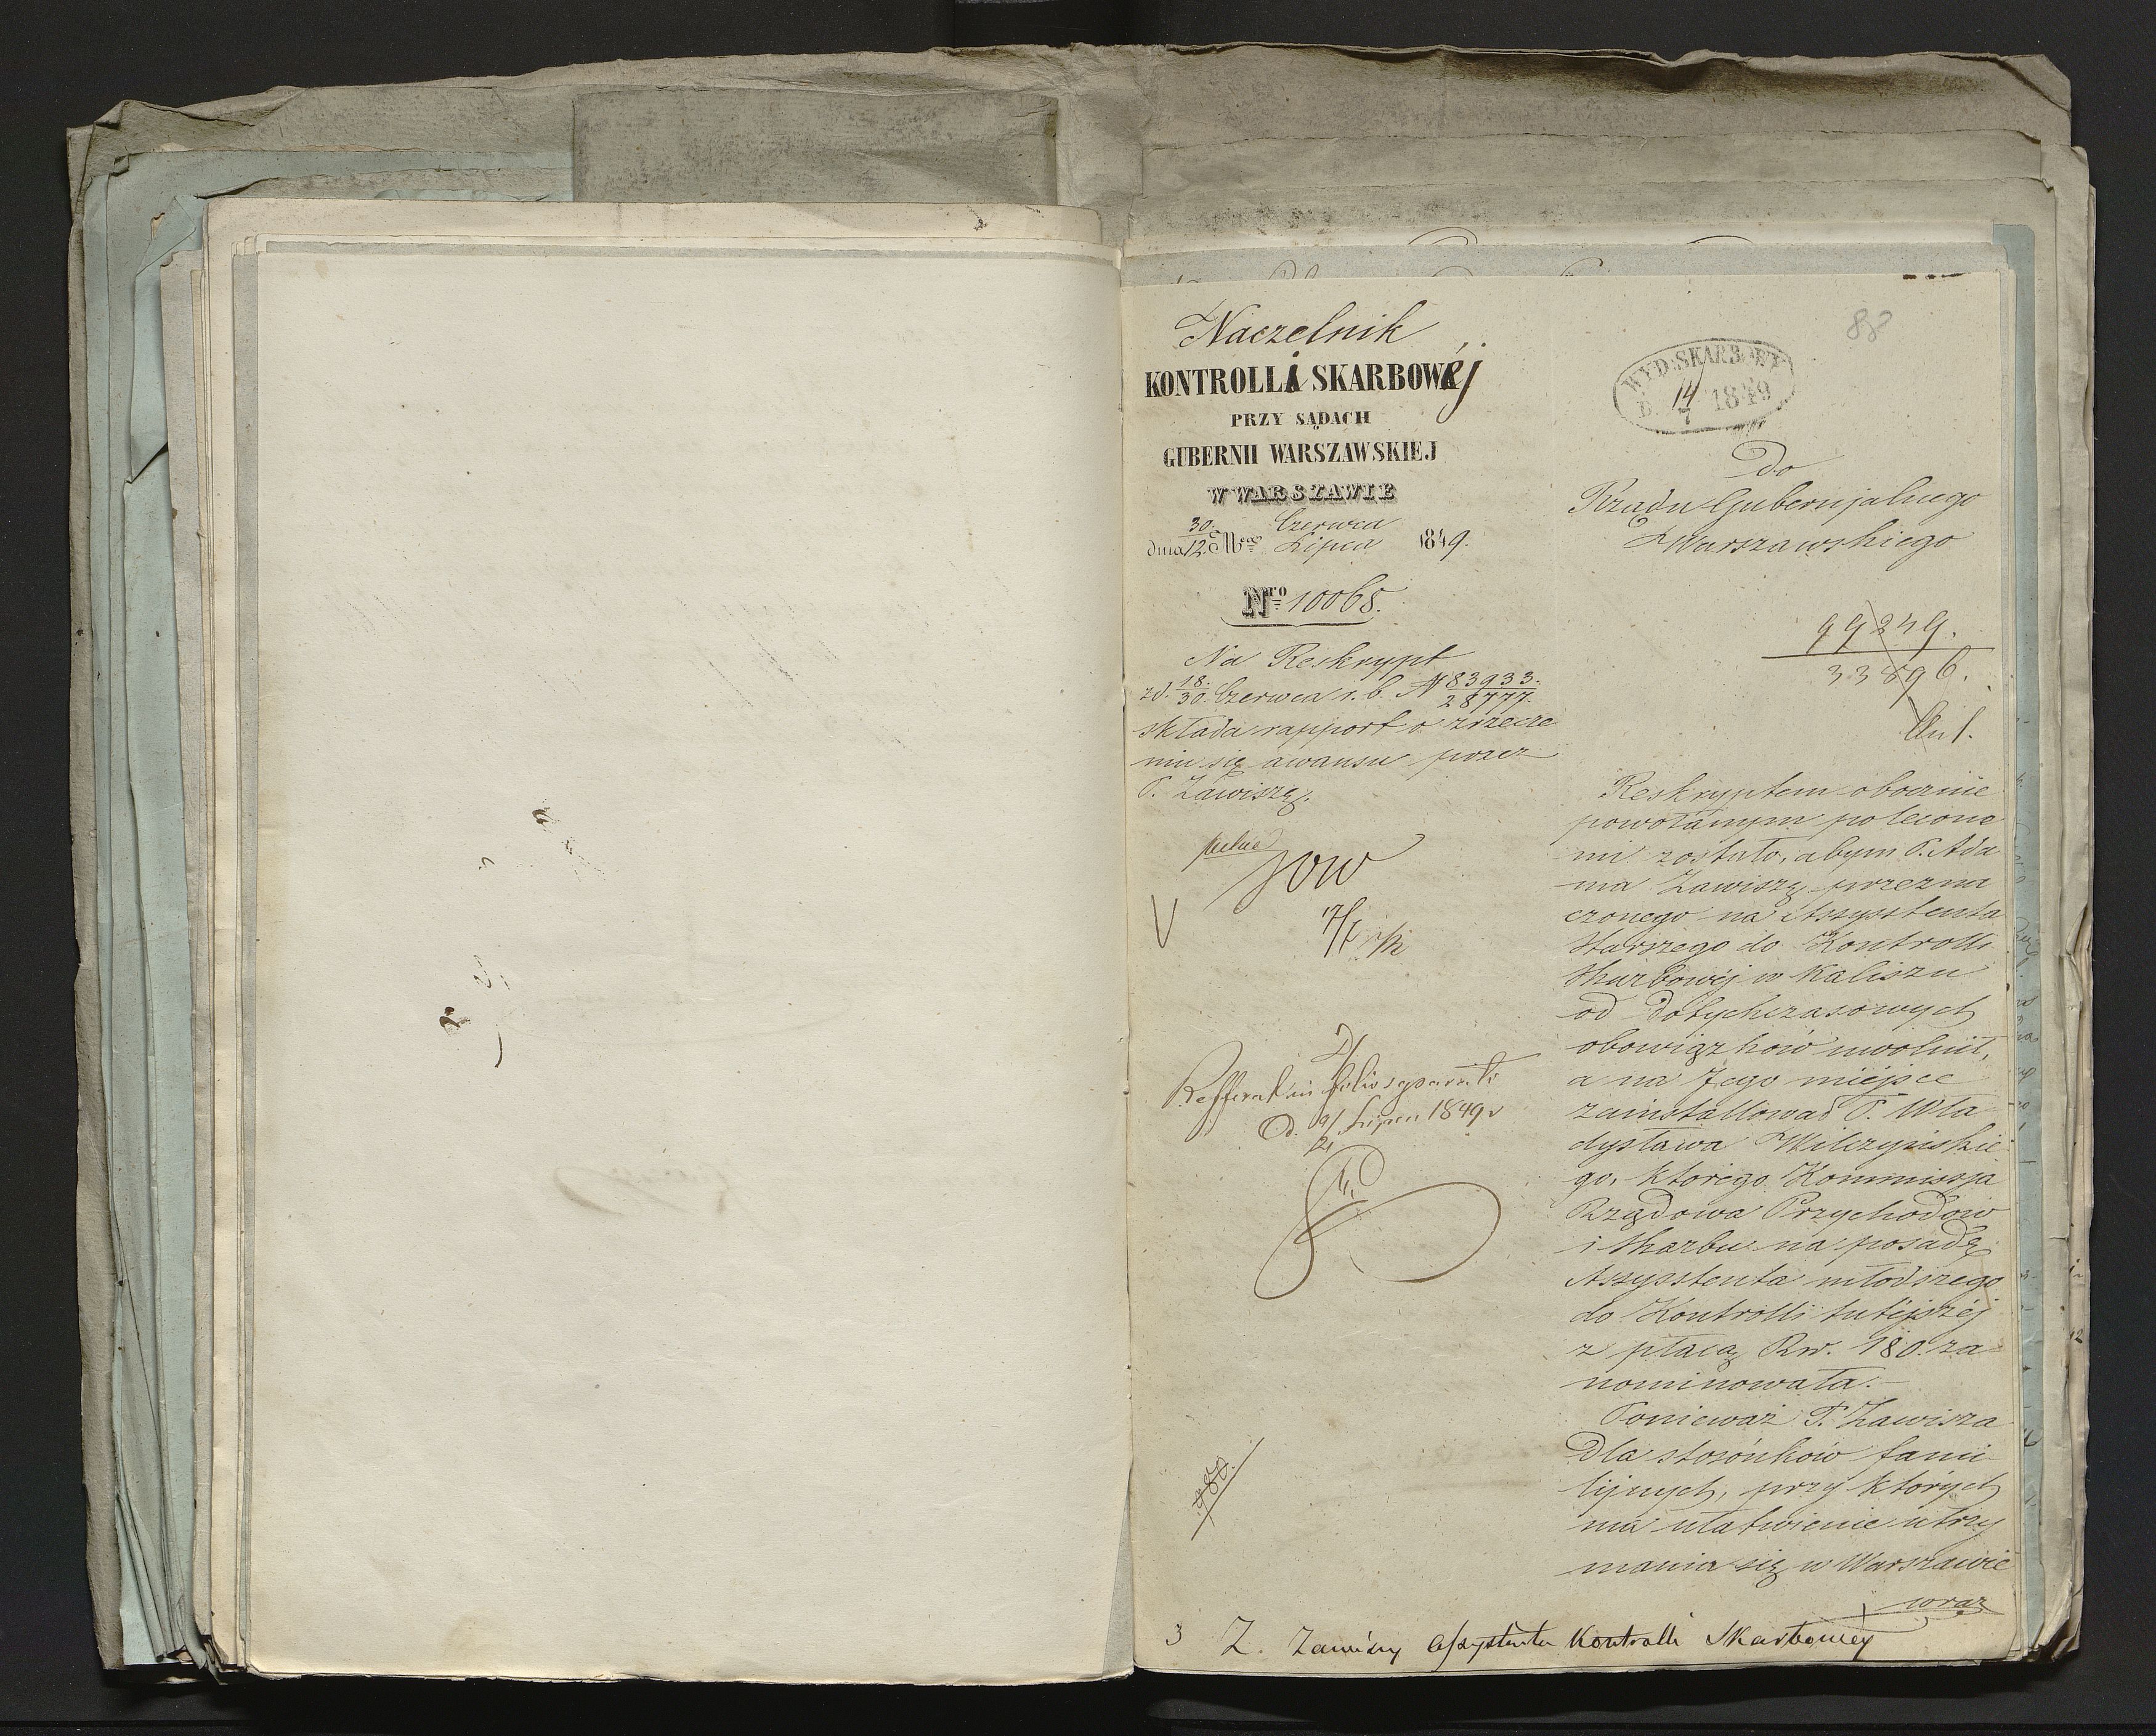 Naczelnik
KONTROLLi SKARBOWéj
PRZY SĄDACH
GUBERNII WARSZAWSKIEJ
W WARSZAWIE
30. Czerwca
dnia 12. Mca Lipca 1849.
Nro 10068.
Na Reskrypt
zd. 18./30. Czerwca r. b. N 83933./28777.
składa rapport o zrzecze
niu się awansu przez
P. Zawiszę.
2/
Refferat in folio separato
D. 9/21 Lipca 1849 r
88
WYD: SKARBOWY
D. 14/7 1849
Do
Rządu Gubernjalnego
Warszawskiego
99249.
33896.
Reskryptem obocznie
powołanym polecone
mi zostało, abym P. Ada
ma Zawiszę przezna
czonego na Assystenta
Starszego do Kontrolli
Skarbowéj w Kaliszu
od dotychczasowych
obowiązków uwolnił,
a na Jego miejsce
zainstallował P. Wła
dysława Wilczyńskie
go, którego Kommissja
Rządowa Przychodów
i Skarbu na posadę
Assystenta młodszego
do Kontrolli tutéjszéj
z płacą Rw. 180. za
nominowała.
Ponieważ P. Zawisza
dla stosónków fami
lijnych, przy których
ma ułatwienie utrzy
mania się w Warszawie
wraz
3 Z. Zawiszy Assystenta Kontrolli Skarbowey